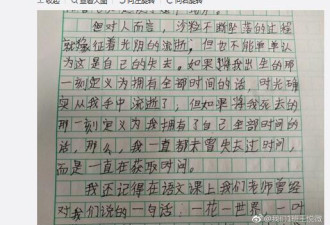 但对人而言，沙粒不断坠落的过程
就象征着光阴的流逝，但也不能单单认
为这是自己的失去。如果将我出生的那
一刻定义为拥有全部时间的话，时光确
实从我手中流逝了，但如果将我死去的
那一刻定义为我拥有了自己全部时间的
话，那么，我一直都未曾失去过时间，
而是一直在获取时间。
我还记得在语文课上我们老师曾经
对我们说的一句话，一花一世界，一叶